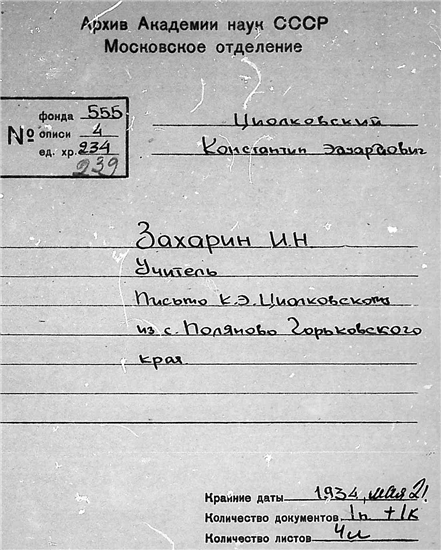 Архив Академии наук СССР
Московское отделение
№
фонда 555
описи 4
ед. хр. 234
239
Циолковский
Константин Эдуардович
Захарин И.Н.
Учитель
Письмо К.Э. Циолковскому
из с. Поляново Горьковского
края
Крайние даты 1934, мая 21
Количество документов 1п + 1к
Количество листов 4л